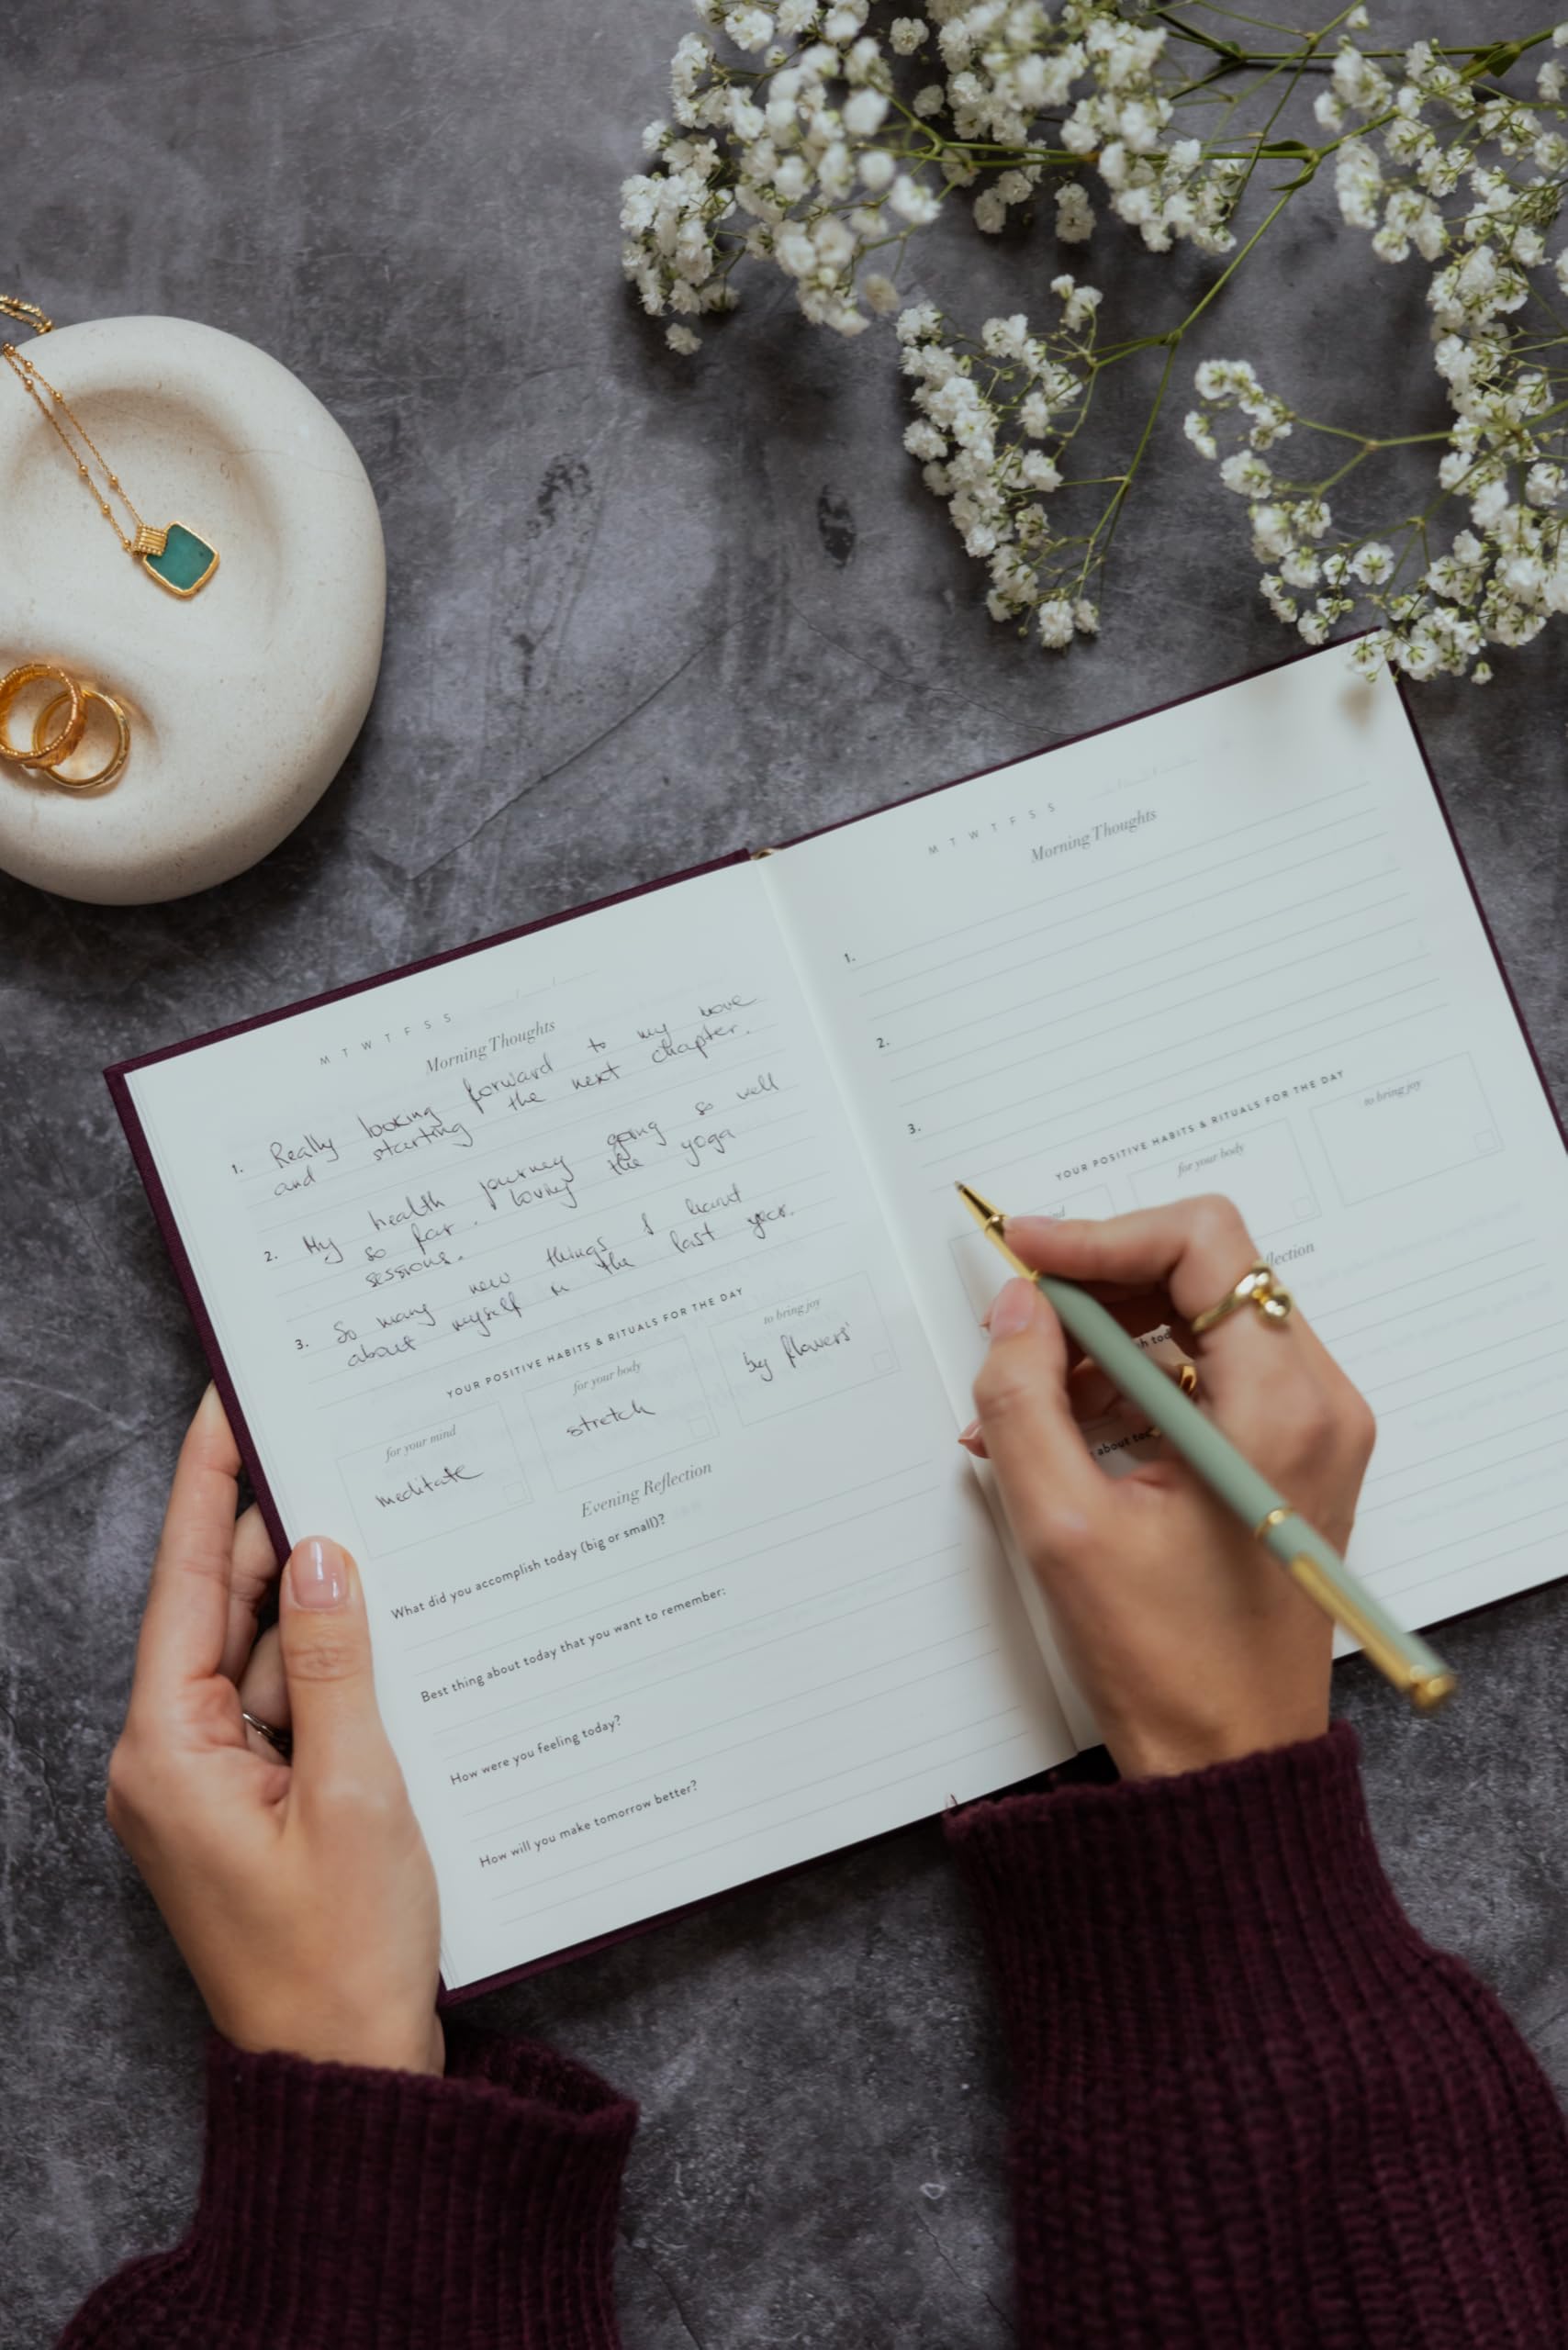 M T W T F S S
Morning Thoughts
1. Really looking forward to my move
and starting the next chapter.
2. My health journey going so well
so far. loving the yoga
sessions.
3. So many new things I learnt
about myself in the last year.
YOUR POSITIVE HABITS & RITUALS FOR THE DAY
for your mind
meditate
for your body
stretch
to bring joy
by flowers'
Evening Reflection
What did you accomplish today (big or small)?
Best thing about today that you want to remember:
How were you feeling today?
How will you make tomorrow better?
M T W T F S S
Morning Thoughts
1.
2.
3.
YOUR POSITIVE HABITS & RITUALS FOR THE DAY
for your body
to bring joy